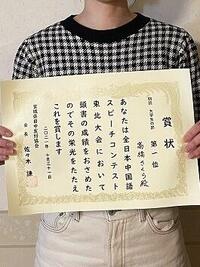 賞状
第一位
高橋さくら殿
あなたは全日本中国語
スピーチコンテスト
東北大会において
頭書の成績をおさめた
のでその栄光をたたえ
これを賞します
二〇二一年十月三十一日
宮城県日中友好協会
会長 佐々木謙